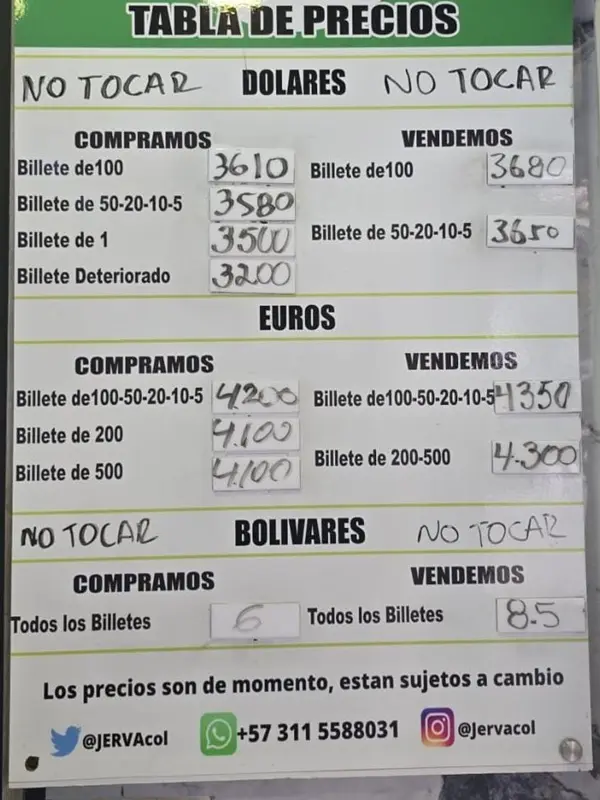 TABLA DE PRECIOS
NO TOCAR DOLARES NO TOCAR
COMPRAMOS VENDEMOS
Billete de100 3610 Billete de100 3680
Billete de 50-20-10-5 3580
Billete de 1 3500 Billete de 50-20-10-5 3650
Billete Deteriorado 3200
EUROS
COMPRAMOS VENDEMOS
Billete de100-50-20-10-5 4.200 Billete de100-50-20-10-5 4350
Billete de 200 4.100
Billete de 500 4.100 Billete de 200-500 4.300
NO TOCAR BOLIVARES NO TOCAR
COMPRAMOS VENDEMOS
Todos los Billetes 6 Todos los Billetes 8.5
Los precios son de momento, estan sujetos a cambio
@JERVAcol +57 311 5588031 @Jervacol